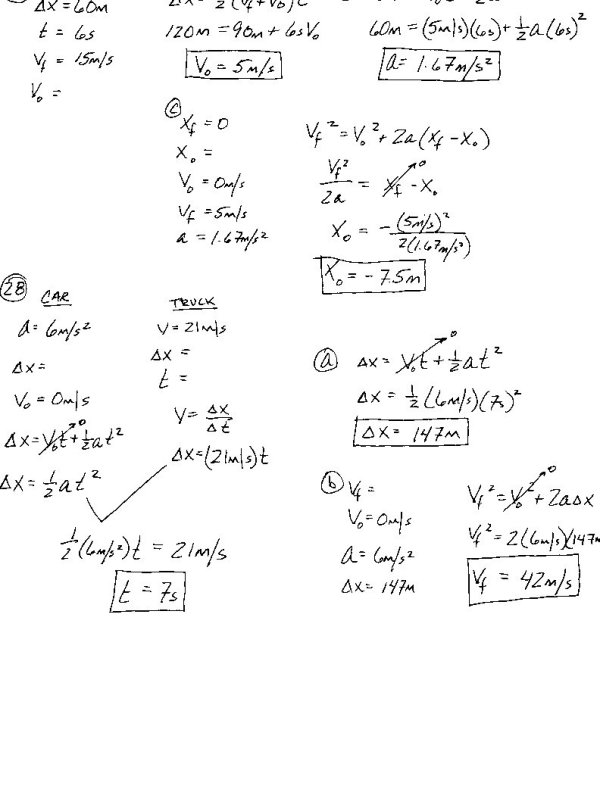 Δx = 60m
t = 6s
Vf = 15m/s
V₀ =
120m = 90m + 6sV₀
V₀ = 5m/s
60m = (5m/s)(6s) + ½a(6s)²
a = 1.67m/s²
ⓒ
Xf = 0
X₀ =
V₀ = 0m/s
Vf = 5m/s
a = 1.67m/s²
Vf² = V₀² + 2a(Xf - X₀)
Vf²/2a = Xf - X₀ 0
X₀ = -(5m/s)²/2(1.67m/s²)
X₀ = -7.5m
28
CAR
a = 6m/s²
Δx =
V₀ = 0m/s
Δx = V₀t + ½at² 0
Δx = ½at²
TRUCK
V = 21m/s
Δx =
t =
V = Δx/Δt
Δx = (21m/s)t
½(6m/s²)t = 21m/s
t = 7s
ⓐ Δx = V₀t + ½at² 0
Δx = ½(6m/s)(7s)²
Δx = 147m
ⓑ Vf =
V₀ = 0m/s
a = 6m/s²
Δx = 147m
Vf² = V₀² + 2aΔx 0
Vf² = 2(6m/s)(147m
Vf = 42m/s